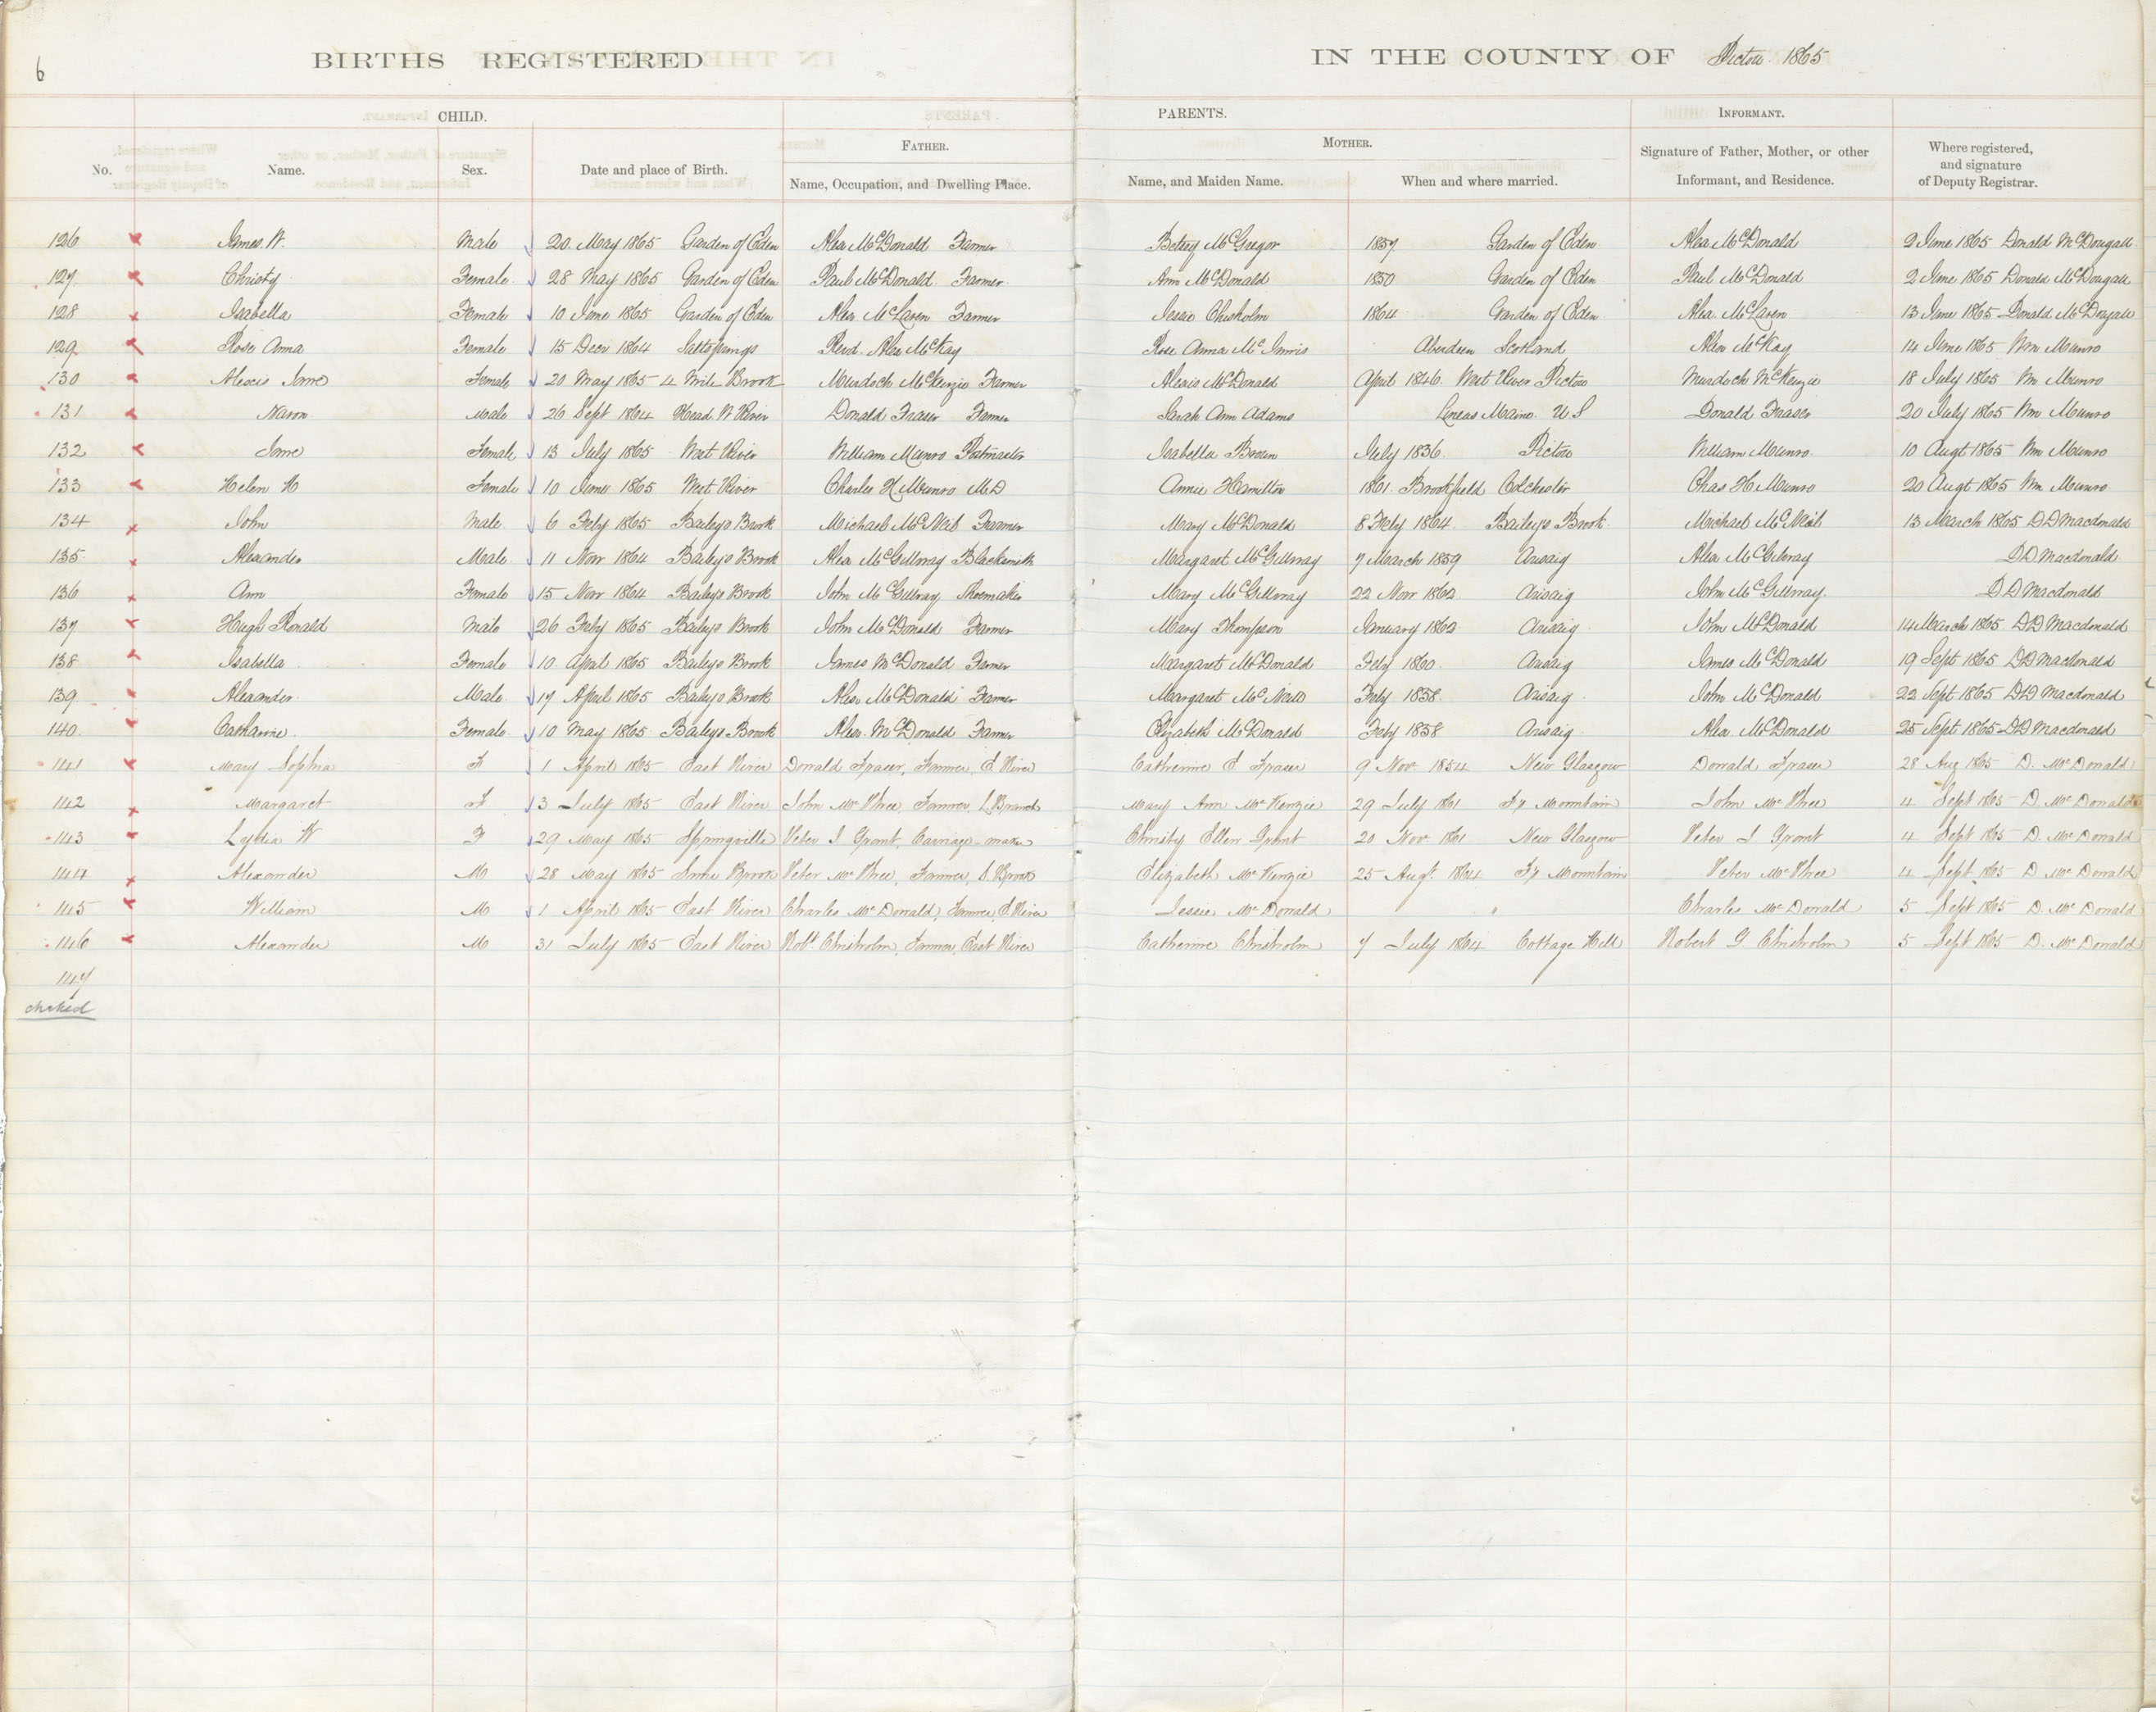 6
BIRTHS REGISTERED IN THE COUNTY OF Pictou 1865
CHILD. PARENTS. INFORMANT.
FATHER. MOTHER.
No. Name. Sex. Date and place of Birth. Name, Occupation, and Dwelling Place. Name, and Maiden Name. When and where married. Signature of Father, Mother, or other Informant, and Residence. Where registered, and signature of Deputy Registrar.
126 James W. Male 20 May 1865 Garden of Eden Alex McDonald Farmer Betsey McGregor 1857 Garden of Eden Alex McDonald 2 June 1865 Donald McDougall
127 Christy Female 28 May 1865 Garden of Eden Paul McDonald Farmer Ann McDonald 1850 Garden of Eden Paul McDonald 2 June 1865 Donald McDougall
128 Isabella Female 10 June 1865 Garden of Eden Alex McLaren Farmer Jessie Chisholm 1864 Garden of Eden Alex. McLaren 13 June 1865 Donald McDougall
129 Rose Anna Female 15 Decr 1864 Saltsprings Revd. Alex McKay Rose Anna McInnis Aberdeen Scotland Alex McKay 14 June 1865 Wm Munro
130 Alexis Jane Female 20 May 1865 4 Mile Brook Murdoch McKenzie Farmer Alexis McDonald April 1846 West River Pictou Murdoch McKenzie 18 July 1865 Wm Munro
131 Male 26 Sept 1864 Head W River Donald Fraser Farmer Sarah Ann Adams Maine U S Donald Fraser 20 July 1865 Wm Munro
132 Jane Female 13 July 1865 West River William Munro Postmaster Isabella Brown July 1836 Pictou William Munro 10 Augt 1865 Wm Munro
133 Helen H Female 10 June 1865 West River Charles H Munro MD Annie Hamilton 1861 Brookfield Colchester Chas H Munro 20 Augt 1865 Wm Munro
134 John Male 6 Feby 1865 Baileys Brook Michael McNeil Farmer Mary McDonald 8 Feby 1864 Baileys Brook Michael McNeil 13 March 1865 DD Macdonald
135 Alexander Male 11 Novr 1864 Baileys Brook Alex McGillvray Blacksmith Margaret McGillvray 7 March 1859 Arisaig Alex McGilvray DD Macdonald
136 Ann Female 15 Novr 1864 Baileys Brook John McGillvray Shoemaker Mary McGillvray 22 Novr 1862 Arisaig John McGillvray DD Macdonald
137 Hugh Ronald Male 26 Feby 1865 Baileys Brook John McDonald Farmer Mary Thompson January 1862 Arisaig John McDonald 14 March 1865 DD Macdonald
138 Isabella Female 10 April 1865 Baileys Brook James McDonald Farmer Margaret McDonald Feby 1860 Arisaig James McDonald 19 Sept 1865 DD Macdonald
139 Alexander Male 17 April 1865 Baileys Brook Alex McDonald Farmer Margaret McNeil Feby 1858 Arisaig John McDonald 22 Sept 1865 DD Macdonald
140 Catharine Female 10 May 1865 Baileys Brook Alex. McDonald Farmer Elizabeth McDonald Feby 1858 Arisaig Alex. McDonald 25 Sept 1865 DD Macdonald
141 Mary Sophia F 1 April 1865 East River Donald Fraser, Farmer, E River Catherine E Fraser 9 Nov 1854 New Glasgow Donald Fraser 28 Aug 1865 D. McDonald
142 Margaret F 3 July 1865 East River John McPhee, Farmer, Branch Mary Ann McKenzie 29 July 1861 Fx Mountain John McPhee 4 Sept 1865 D. McDonald
143 Lydia W F 29 May 1865 Springville Peter I Grant, Carriage-maker Christy Ellen Grant 20 Nov 1861 New Glasgow Peter I Grant 4 Sept 1865 D. McDonald
144 Alexander M 28 May 1865 Brook Peter McPhee, Farmer, Brook Elizabeth McKenzie 25 Augt. 1864 Fx Mountain Peter McPhee 4 Sept 1865 D McDonald
145 William M 1 April 1865 East River Charles McDonald, Farmer E. River Jessie McDonald " Charles McDonald 5 Sept 1865 D. McDonald
146 Alexander M 31 July 1865 East River Robt Chisholm, Farmer, East River Catherine Chisholm 7 July 1864 Cottage Hill Robert G Chisholm 5 Sept 1865 D. McDonald
147